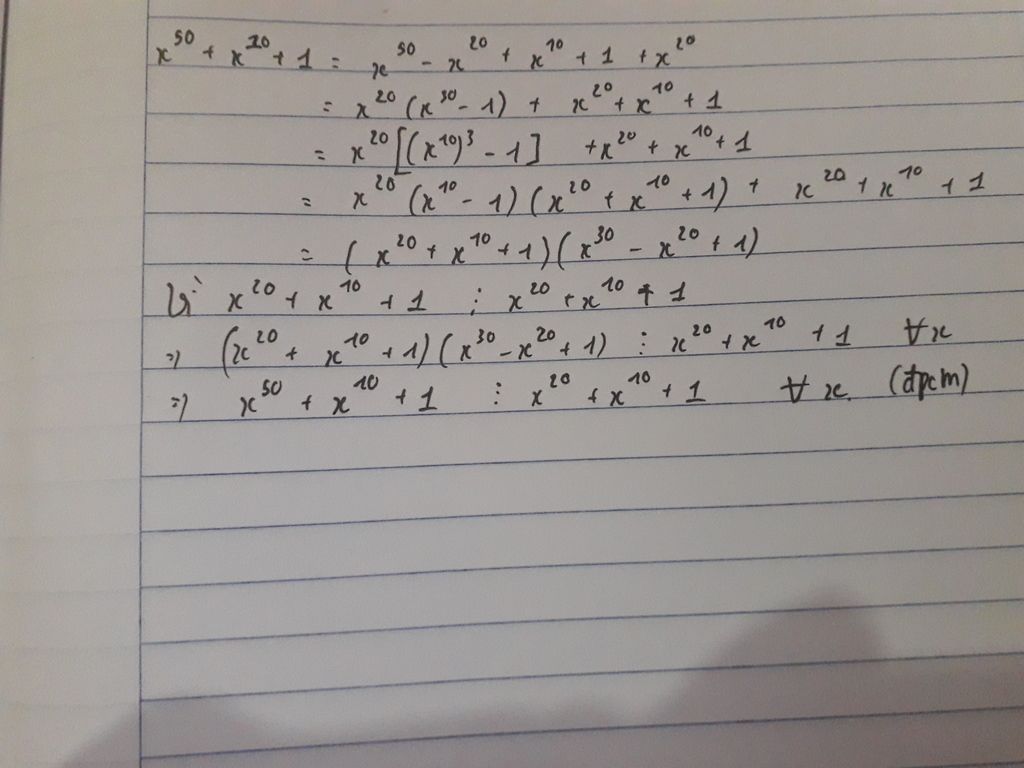 x⁵⁰ + x¹⁰ + 1 = x⁵⁰ - x²⁰ + x¹⁰ + 1 + x²⁰
= x²⁰ (x³⁰ - 1) + x²⁰ + x¹⁰ + 1
= x²⁰ [(x¹⁰)³ - 1] + x²⁰ + x¹⁰ + 1
= x²⁰ (x¹⁰ - 1) (x²⁰ + x¹⁰ + 1) + x²⁰ + x¹⁰ + 1
= (x²⁰ + x¹⁰ + 1) (x³⁰ - x²⁰ + 1)
Vì x²⁰ + x¹⁰ + 1 ⋮ x²⁰ + x¹⁰ + 1
=> (x²⁰ + x¹⁰ + 1) (x³⁰ - x²⁰ + 1) ⋮ x²⁰ + x¹⁰ + 1 ∀x
=> x⁵⁰ + x¹⁰ + 1 ⋮ x²⁰ + x¹⁰ + 1 ∀x. (đpcm)